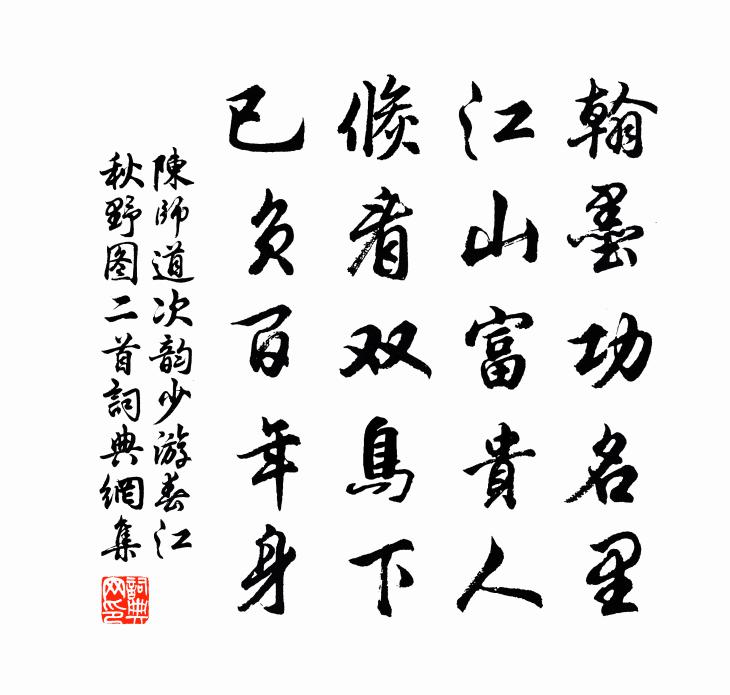 翰墨功名里
江山富貴人
倏看双鳥下
已负百年身
陳師道次韵少游春江
秋野图二首詞典網集
詞典
网印